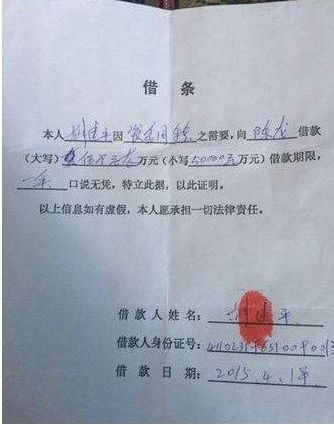 借 条
本人 建平因 资金周转 之需要,向 陈龙 借款
(大写) 伍万元 万元(小写 50000元 万元)借款期限,
一年 口说无凭,特立此据,以此证明。
以上信息如有虚假,本人愿承担一切法律责任。
借款人姓名: 建平
借款人身份证号:
借款日期: 2015.4.1